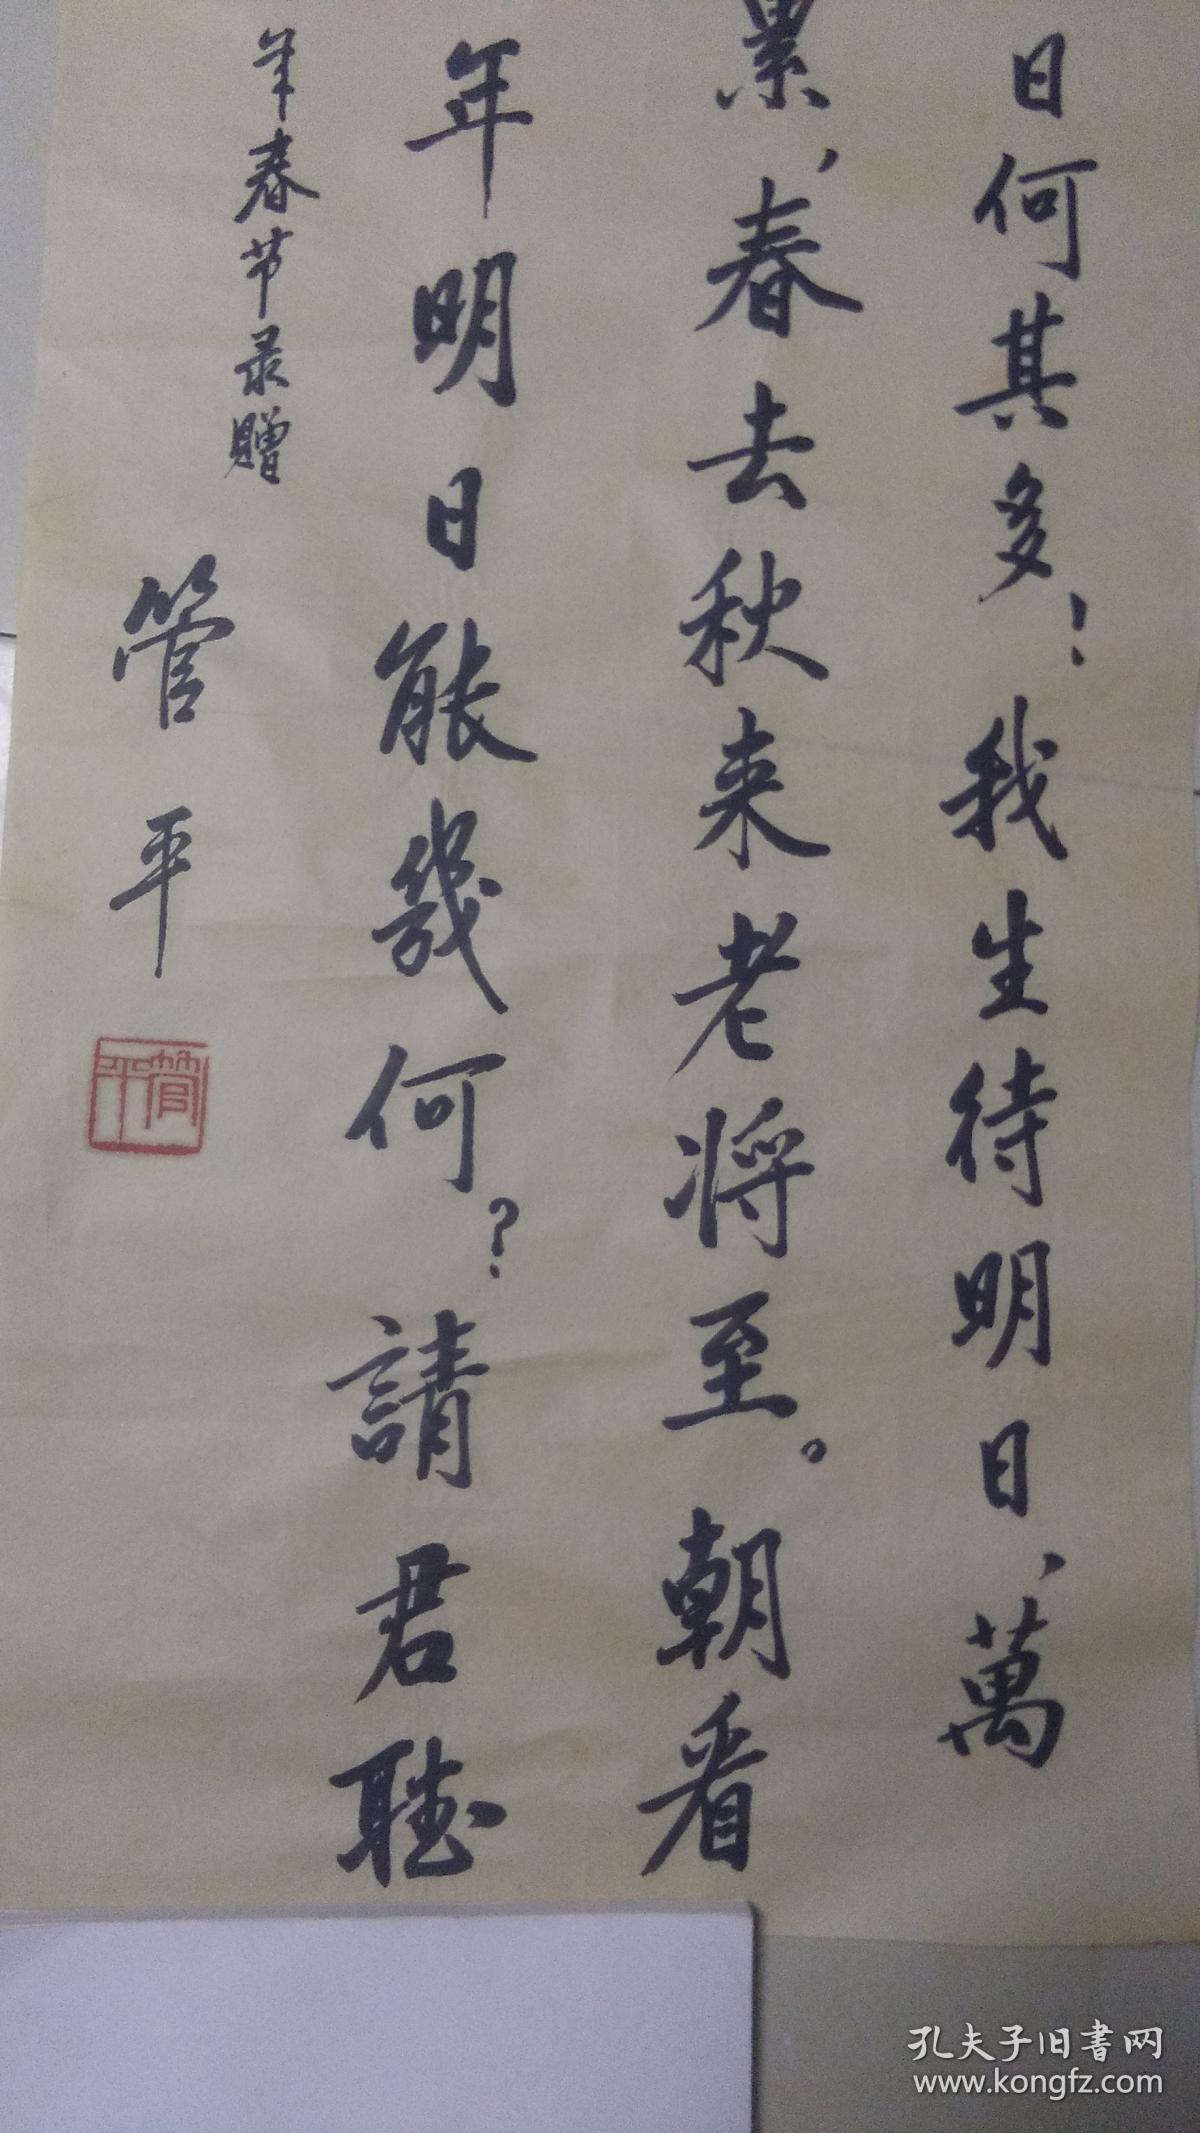 日何其多！我生待明日、萬
累、春去秋来老将至。朝看
年明日能幾何？請君聴
年春节录贈
管平
管平
孔夫子旧書网
www.kongfz.com